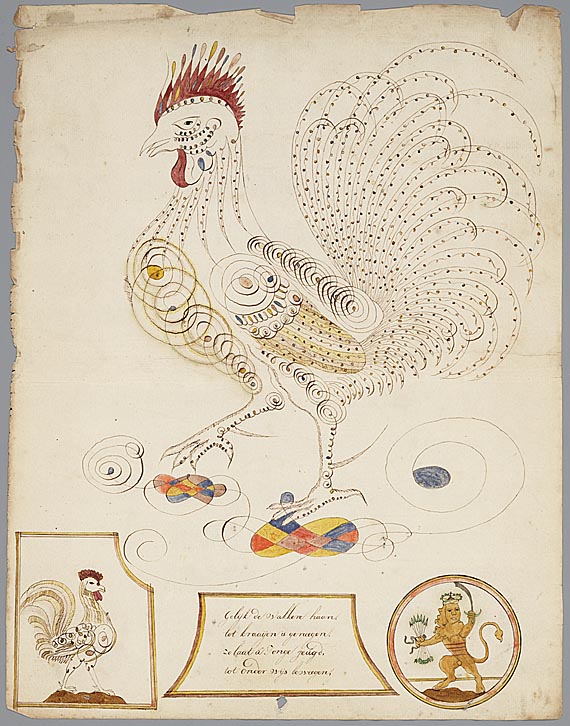 Gelijk de Wakkere haan,
tot kraaijen is genegen.
zo laat ū 'ō jonge jeugd.
tot Onder wijs bewegen,